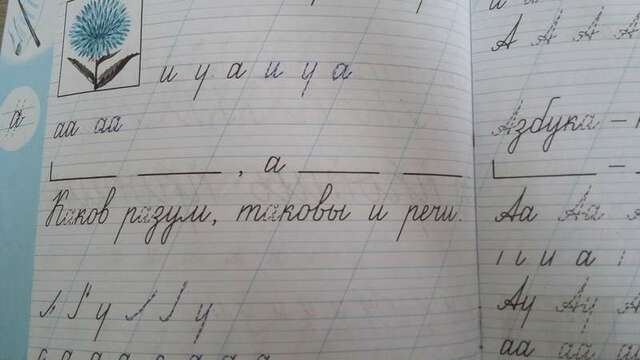 и у а и у а
а
аа аа
, а
Каков разум, таковы и речи.
у у
а а а а а а а
А А А А
Азбука –
–
Аа Аа А
ı и и а ı
Ау Ау А
аа аа аа